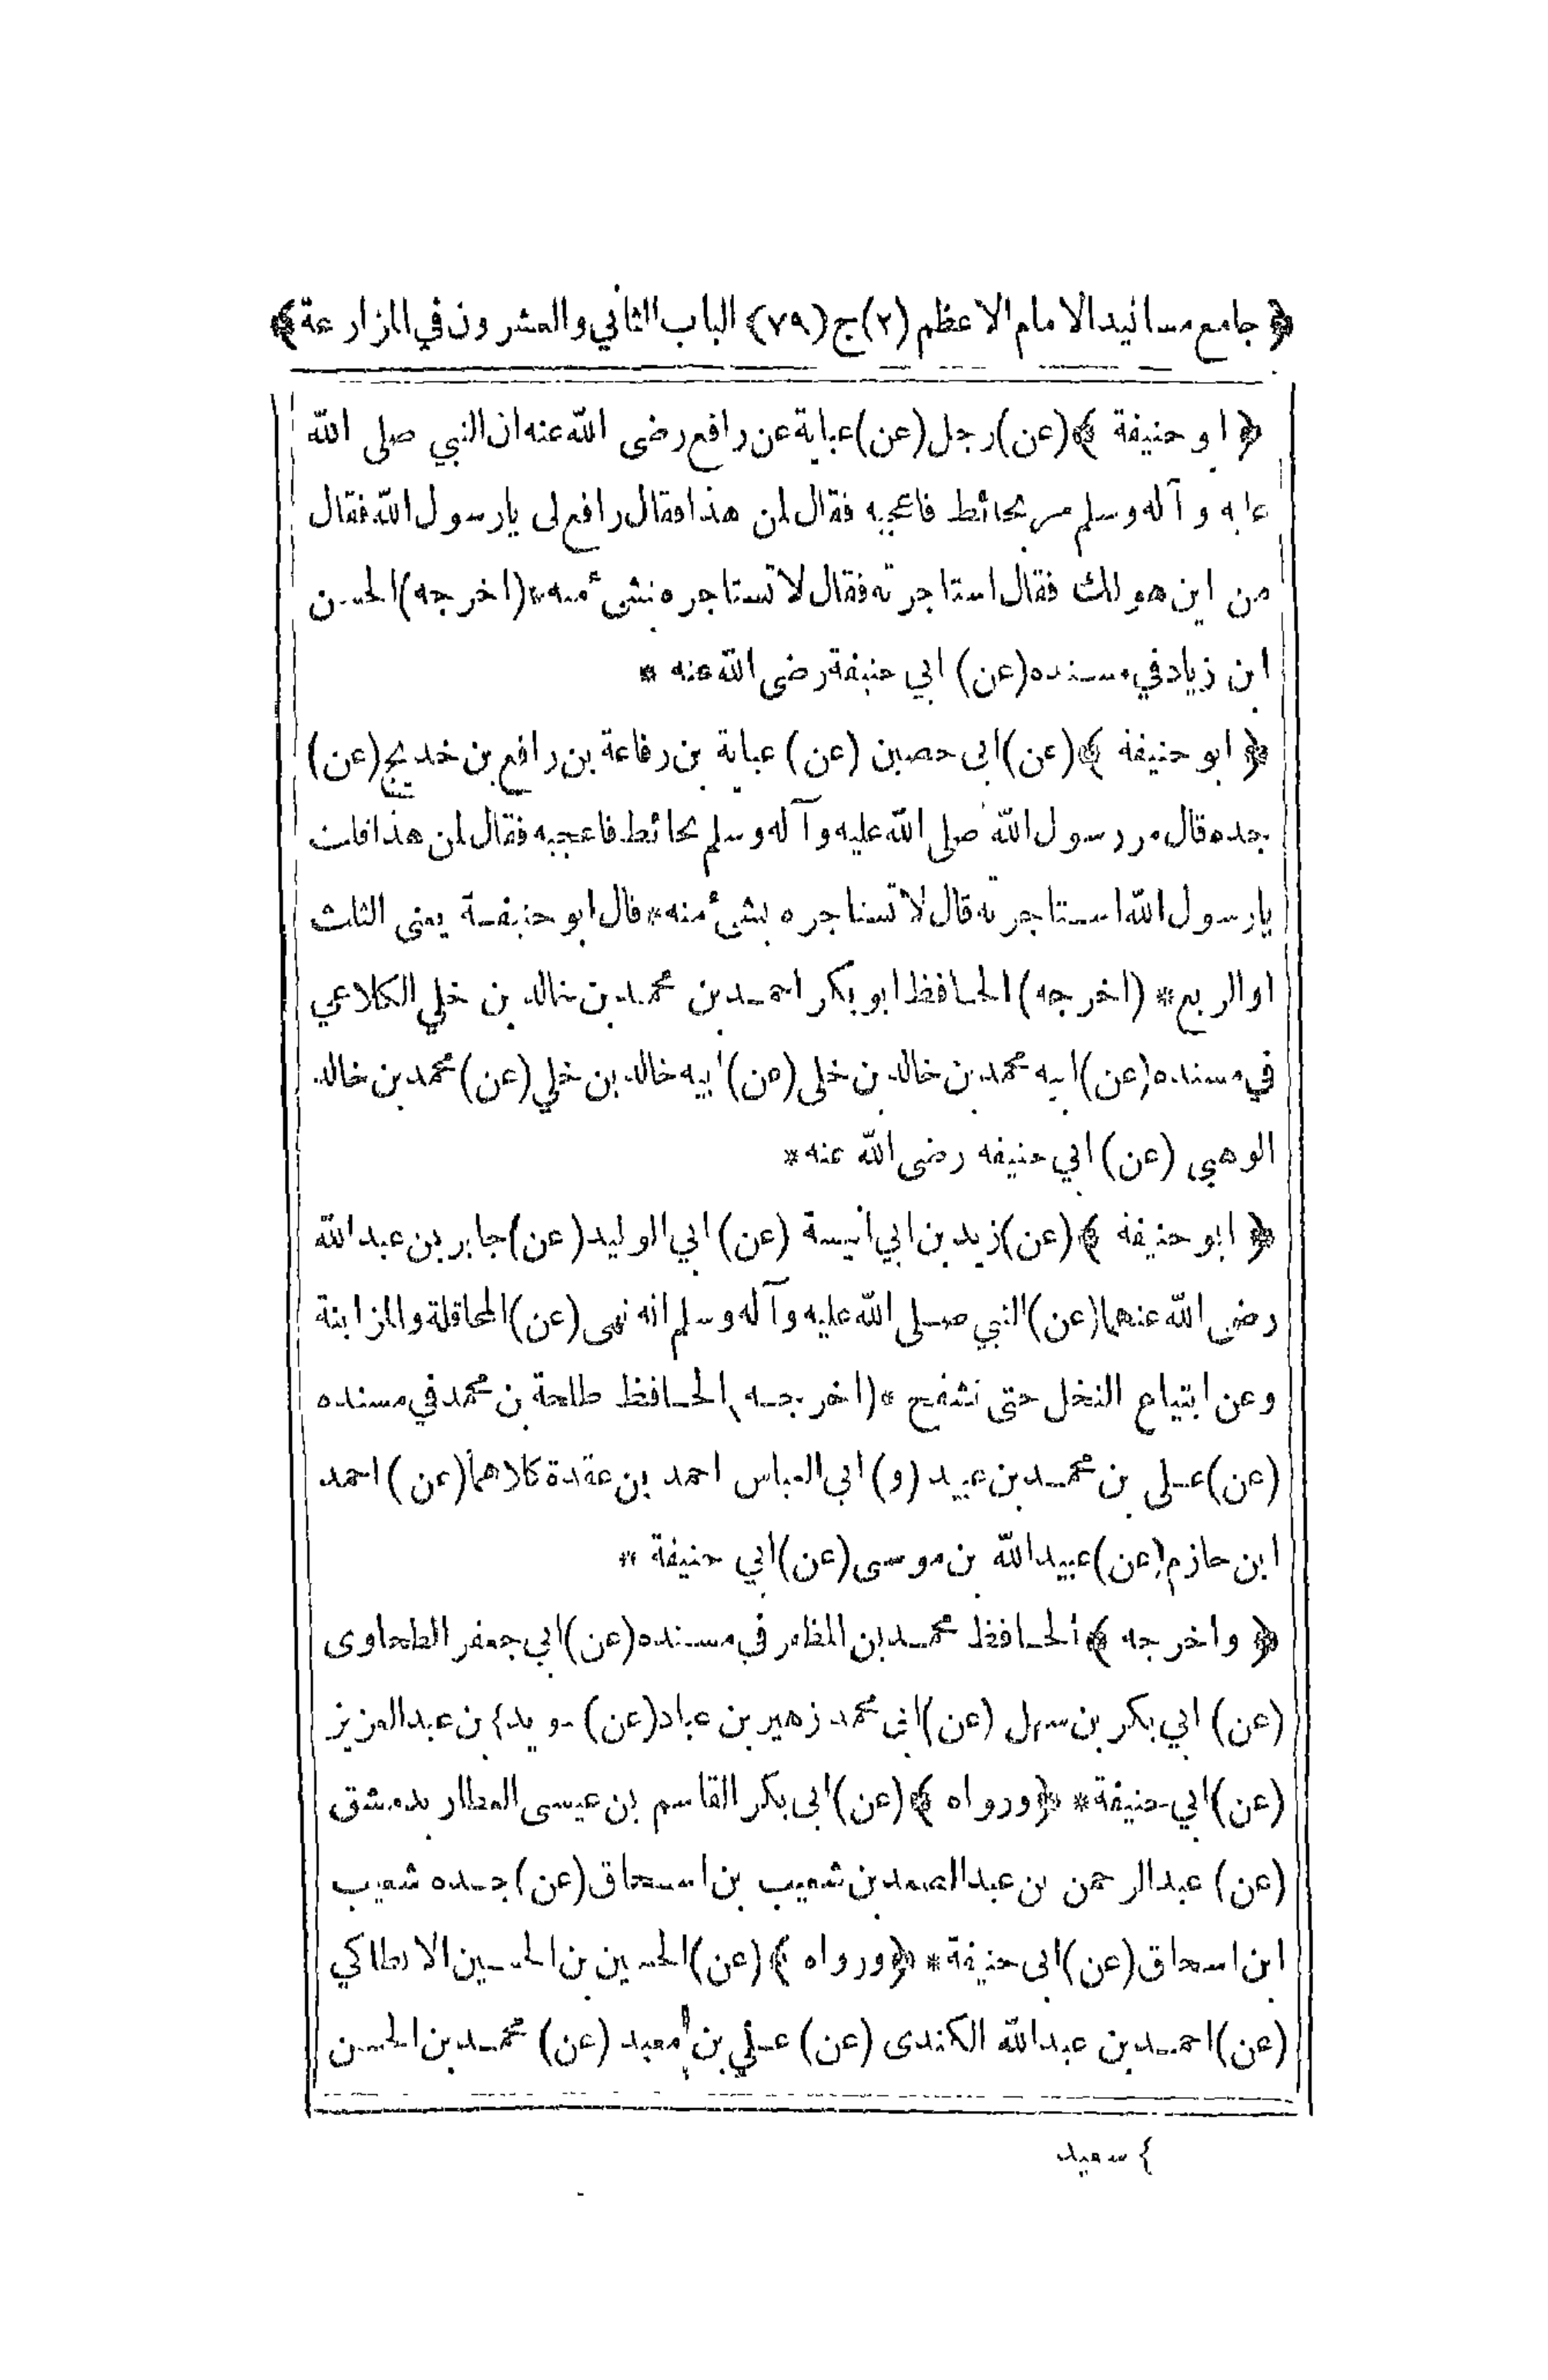 ﴿ جامع مسانيد الامام الاعظم (٢) ج (٧٩) الباب الثاني والعشرون في المزارعة ﴾
﴿ ابو حنيفة ﴾ (عن) رجل (عن) عباية عن رافع رضى الله عنه ان النبي صلى الله
عليه وآله وسلم مر بحائط فاعجبه فقال لمن هذا فقال رافع لى يا رسول الله فقال
من اين هو لك فقال استاجرته فقال لا تستاجره بشئ منه * (اخرجه) الحسن
ابن زياد في مسنده (عن) ابي حنيفة رضى الله عنه *
﴿ ابو حنيفة ﴾ (عن) ابى حصين (عن) عباية بن رفاعة بن رافع بن خديج (عن)
جده قال مر رسول الله صلى الله عليه وآله وسلم بحائط فاعجبه فقال لمن هذا فقلت
يا رسول الله استاجرته قال لا تستاجره بشئ منه * قال ابو حنيفة يعنى الثلث
او الربع * (اخرجه) الحافظ ابو بكر احمد بن محمد بن خالد بن خلي الكلاعي
في مسنده (عن) ابيه محمد بن خالد بن خلى (عن) ابيه خالد بن خلي (عن) محمد بن خالد
الوهبي (عن) ابي حنيفه رضى الله عنه *
﴿ ابو حنيفة ﴾ (عن) زيد بن ابي انيسة (عن) ابي الوليد (عن) جابر بن عبد الله
رضى الله عنهما (عن) النبي صلى الله عليه وآله وسلم انه نهى (عن) المحاقلة والمزابنة
وعن ابتياع النخل حتى تشقح * (اخرجه) الحافظ طلحة بن محمد في مسنده
(عن) علي بن محمد بن عبيد (و) ابي العباس احمد بن عقدة كلاهما (عن) احمد
ابن حازم (عن) عبيد الله بن موسى (عن) ابي حنيفة *
﴿ واخرجه ﴾ الحافظ محمد بن المظفر في مسنده (عن) ابي جعفر الطحاوى
(عن) ابي بكر بن سهل (عن) ابى محمد زهير بن عباد (عن) سويد } بن عبد العزيز
(عن) ابي حنيفة * ﴿ ورواه ﴾ (عن) ابى بكر القاسم بن عيسى العطار بدمشق
(عن) عبد الرحمن بن عبد الصمد بن شعيب بن اسحاق (عن) جده شعيب
ابن اسحاق (عن) ابى حنيفة * ﴿ ورواه ﴾ (عن) الحسين بن الحسين الانطاكي
(عن) احمد بن عبد الله الكندى (عن) علي بن معبد (عن) محمد بن الحسن
} سعيد